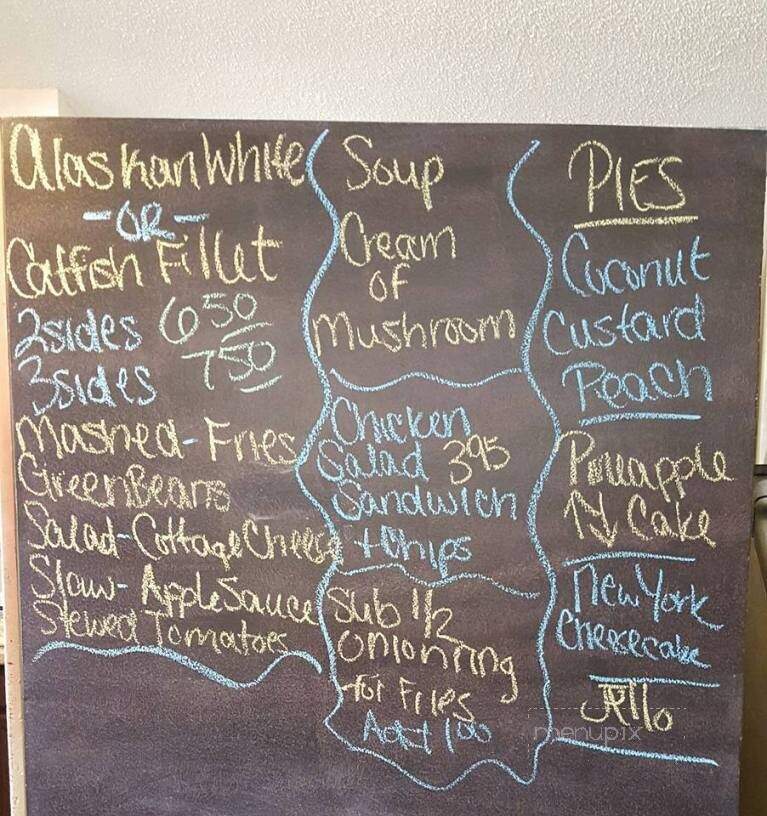 Alaskan White
-OR-
Catfish Fillet
2sides 6 50
3sides 7 50
Mashed-Fries
Green Beans
Salad-Cottage Cheese
Slaw-Apple Sauce
Stewed Tomatoes
Soup
Cream
of
Mushroom
Chicken
Salad 3 95
Sandwich
+ Chips
Sub 1/2
Onion ring
for Fries
Add 1 00
PIES
Coconut
Custard
Peach
Pineapple
↑↓ Cake
New York
Cheesecake
Jello
menupix